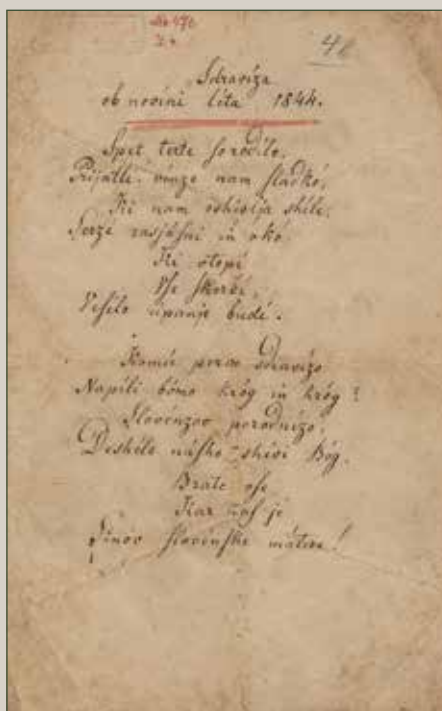 4
Sdraviza
ob novini léta 1844.
Spet terte so rodile,
Prijatli, vinze nam sladkó,
Ki nam oshivlja shile,
Serzé rasjásni in okó
Ki utopi
Vse skerbi,
Veselo upanje budi.
Komú pervo sdravizo
Napili bómo króg in króg?
Slovénzov porodnizo,
Deshélo násho shivi Bóg,
Brate vse
Kar nas je
Sinov slovénske mátere!